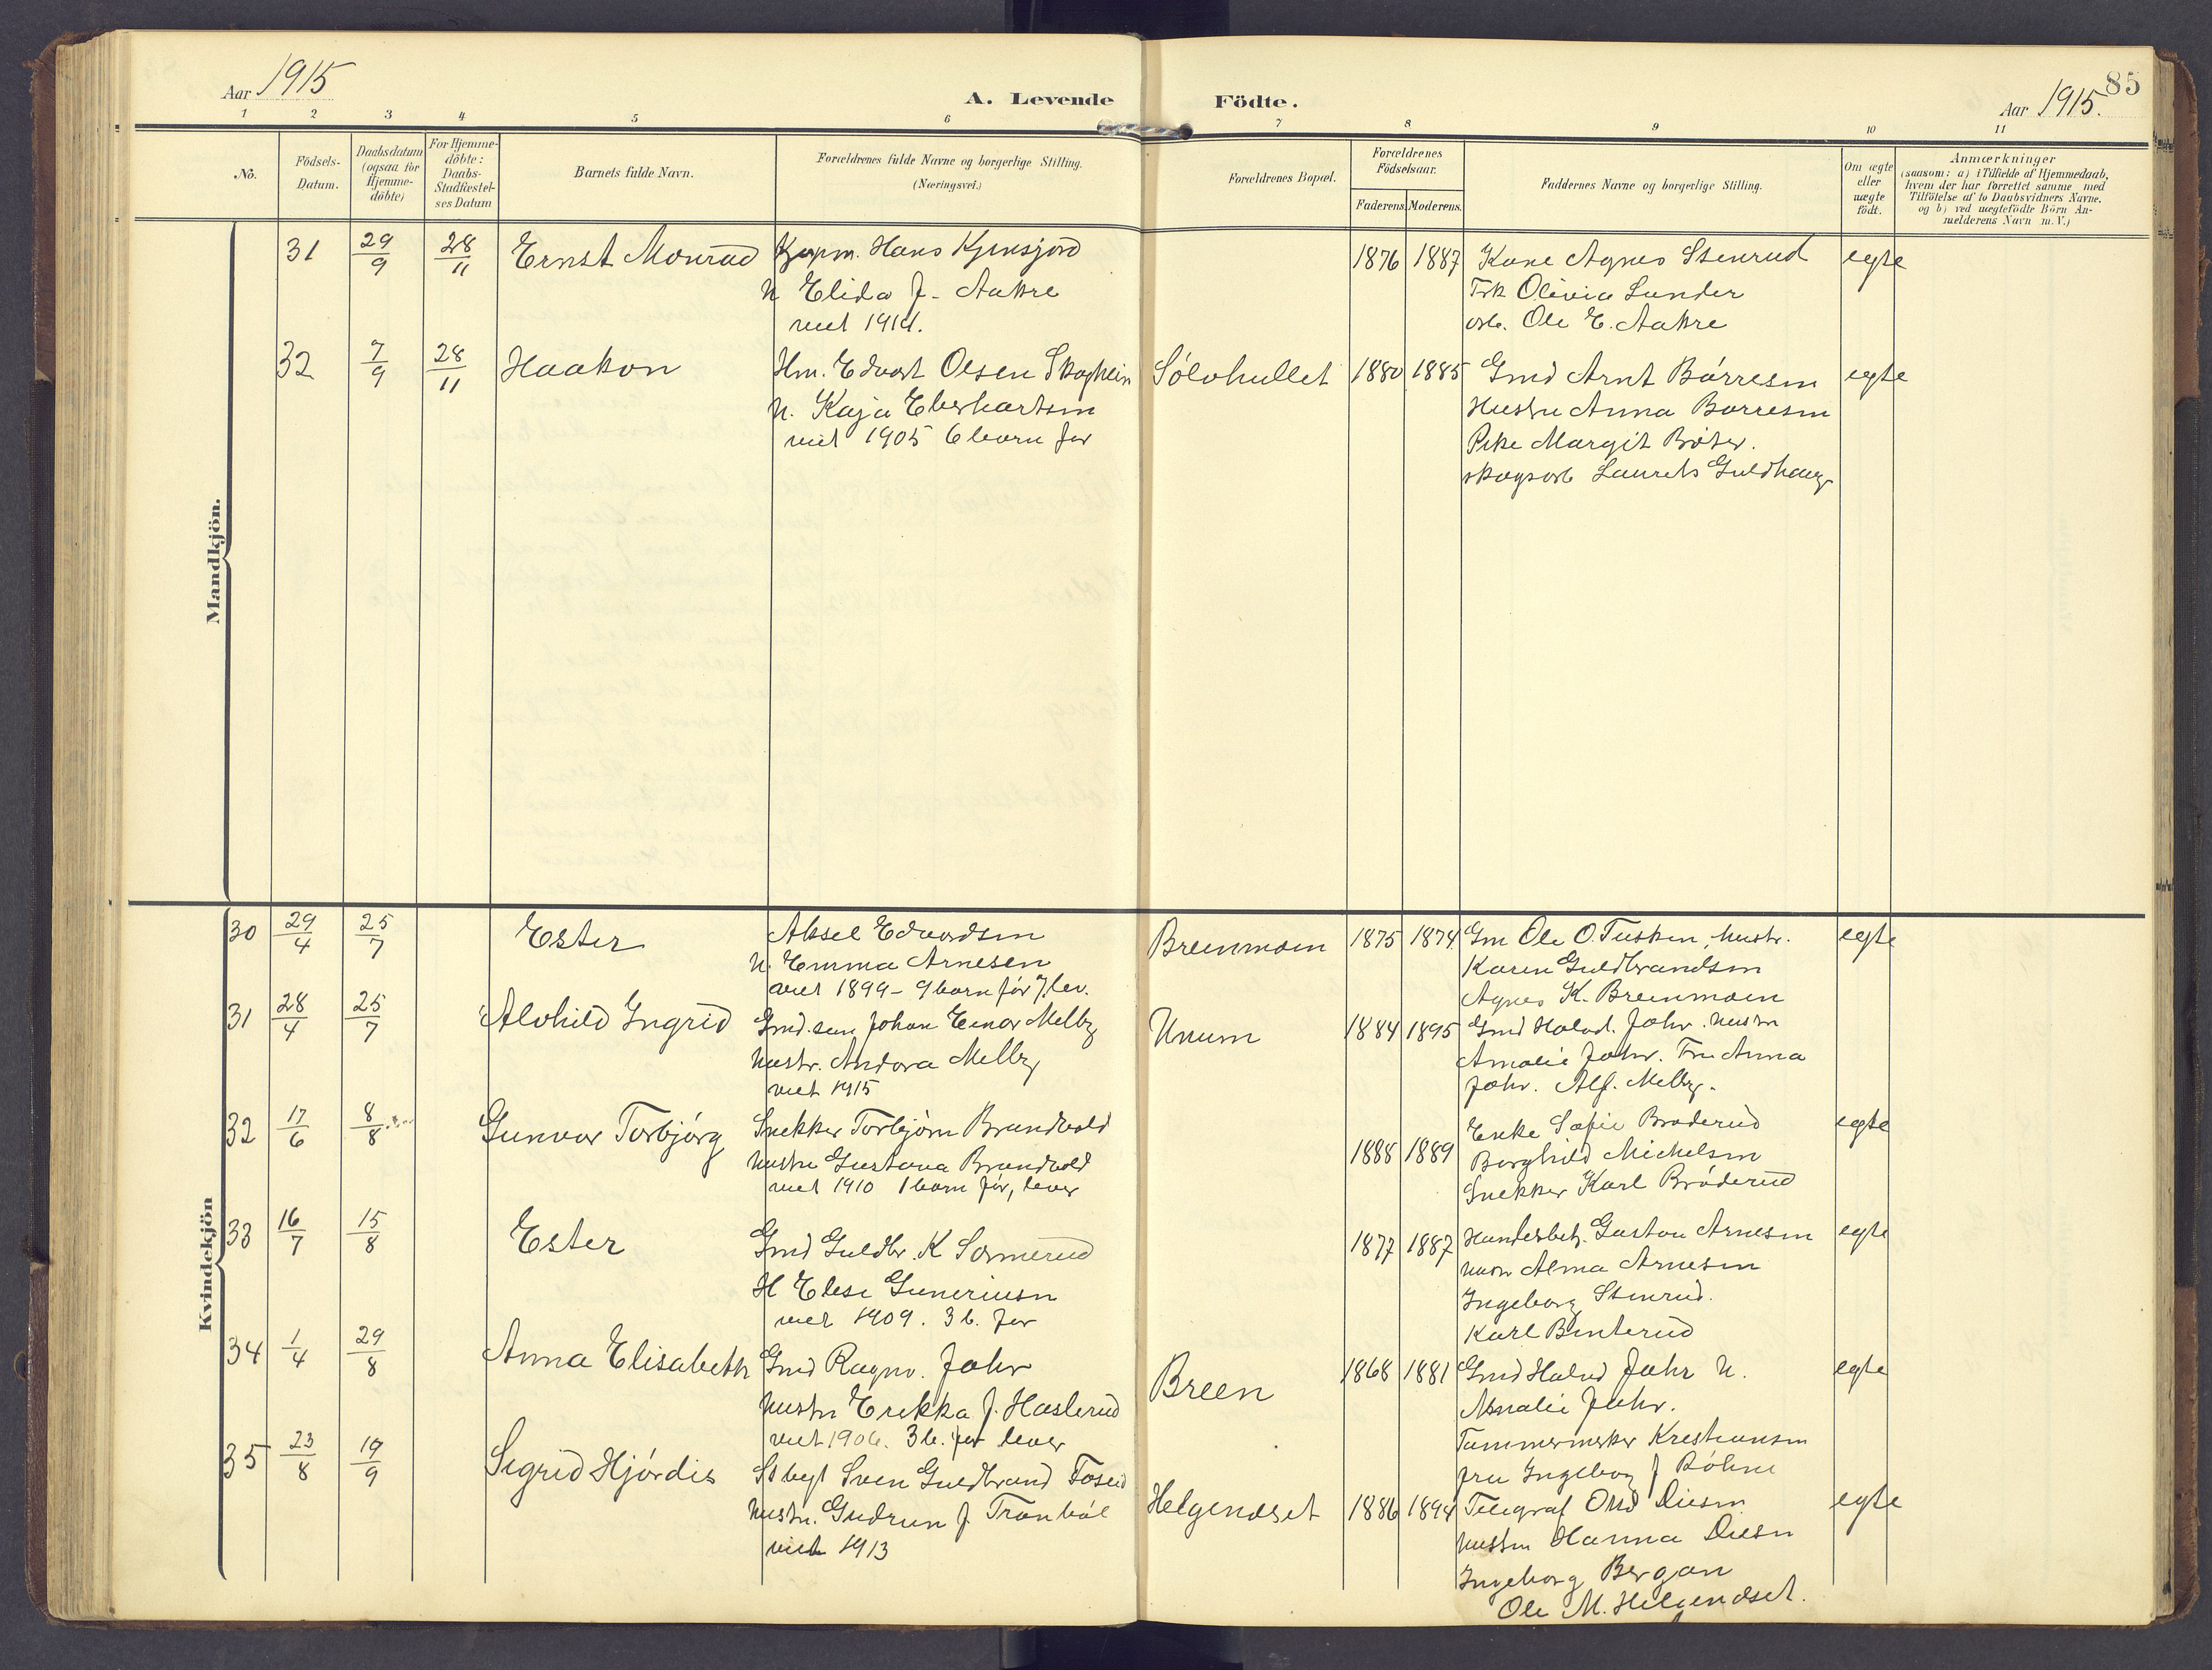 85
Aar 1915
A. Levende Födte.
Aar 1915.
1 2 3 4 5 6 7 8 9 10 11
No.
Födsels-
Datum.
Daabsdatum
(ogsaa for
Hjemme-
döbte)
For Hjemme-
döbte:
Daabs-
Stadfæstel-
ses Datum
Barnets fulde Navn.
Forældrenes fulde Navne og borgerlige Stilling.
(Næringsvei.)
Forældrenes Bopæl.
Forældrenes
Födselsaar.
Faderens. Moderens.
Faddernes Navne og borgerlige Stilling.
Om ægte
eller
uægte
födt.
Anmærkninger
(saasom: a) i Tilfælde af Hjemmedaab,
hvem der har forrettet samme med
Tilföielse af to Daabsvidners Navne,
og b) ved uægtefödte Börn An-
melderens Navn m.V.)
Mandkjön.
31 29/9 28/11 Ernst Monrad
Kjøpm. Hans Kjensjord
H Elida J. Aakre
viet 1914.
1876 1887
Kone Agnes Stenrud
Frk Olivia Sander
arb. Ole E. Aakre
egte
32 7/9 28/11 Haakon
Hm. Edvart Olsen Skoghein
H. Kaja Eberhartsen
viet 1905 6 barn før
Sølvhullet
1880 1885
Gmd Arnt Børresen
Hustru Anna Børresen
Pike Margit
skogsarb Laurits Guldhaug
egte
Kvindekjön
30 29/4 25/7 Ester
Aksel Edvardsen
H. Emma Arnesen
viet 1899 - 9 barn før 7 lev.
Breenmoen
1875 1874
Gm Ole O. Tusken, hustr.
Karen Guldbrandsen
Agnes K. Breenmoen
egte
31 28/4 25/7 Alvhild Ingrid
Gmd. søn Johan Einar Melby
hustr. Andora Melby
viet 1915
Unum
1884 1895
Gmd Halvd. Johr. hustru
Amalie Johr. Fru Anna
Johr. Alf. Melby.
32 17/6 8/8 Gunvor Torbjørg
Snekker Torbjørn Brandvold
hustru Gustava Brandvold
viet 1910 1 barn før, lever
1888 1889
Enke Sofie Brøderud
Borghild Michelsen
Snekker Karl Brøderud
egte
33 16/7 15/8 Ester
Gmd Guldbr. K Sormerud
H Elise Gunerius
viet 1909. 3 b. før
1877 1887
Handelsbetj. Gustav Arnesen
hustr Alma Arnesen
Ingeborg Stenrud.
Karl Benterud
egte
34 1/4 29/8 Anna Elisabeth
Gmd Ragnv. Johr
hustru Erikka J. Haslerud
viet 1906. 3 b. før lever
Breen
1868 1881
Gmd Halvd Johr H.
Amalie Johr.
Tømmermerker Kristiansen
fru Ingeborg J Bøhne
egte
35 23/8 19/9 Sigrid Hjørdis
Sven Guldbrand Foseid
hustru. Gudrun J. Tranbøl
viet 1913
Helgendset
1886 1894
Telegraf
hustru Hanna
Ingeborg Bergan
Ole M. Helgendset.
egte